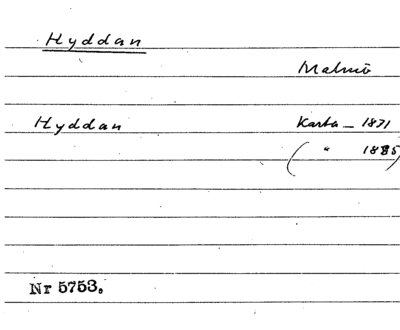 Hyddan
Malmö
Hyddan Karta – 1871
( " 1885)
Nr 5753.